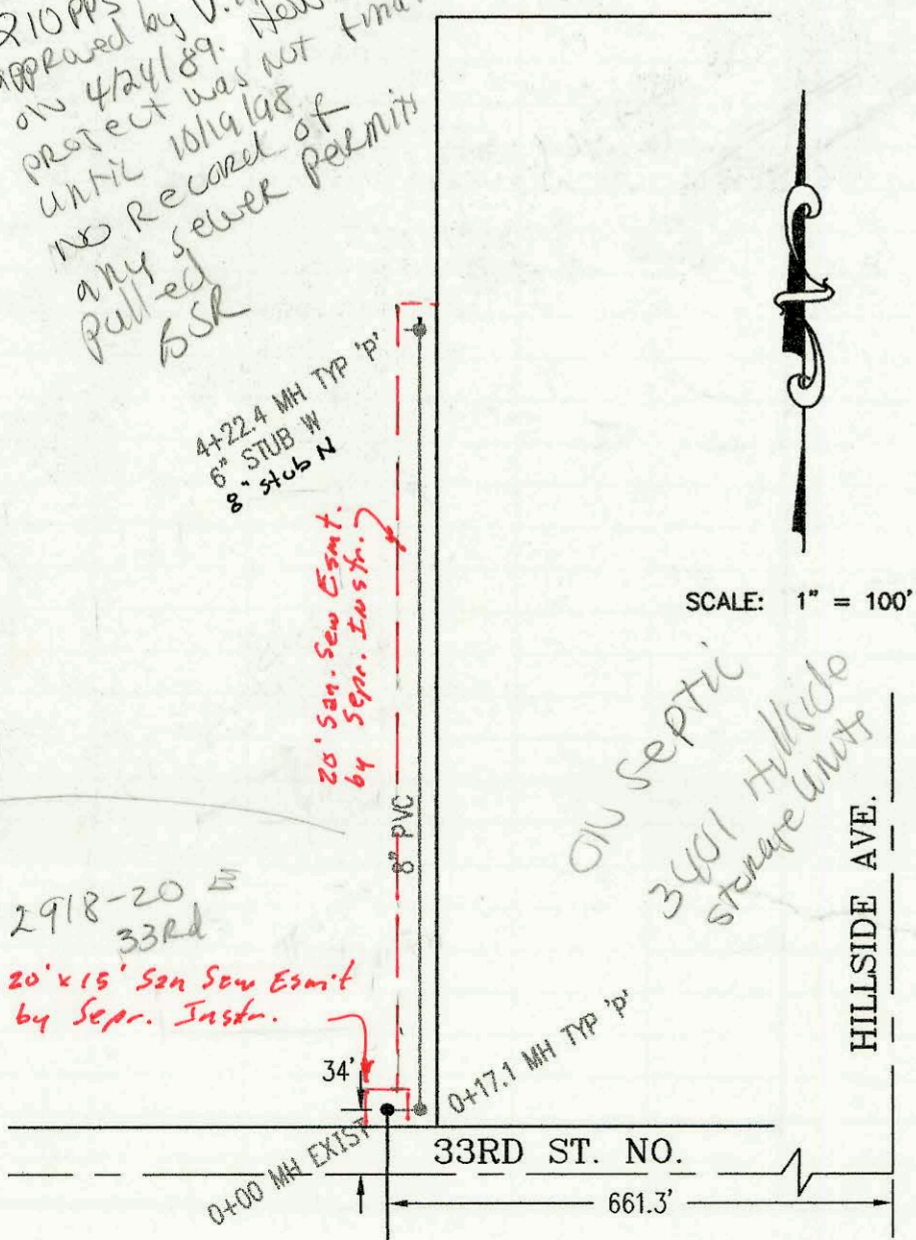 210 PPS
approved by
on 4/24/89.
project was not
until 10/19/98
NO Record of
any sewer permits
pulled
BSR
4+22.4 MH TYP 'P'
6" STUB W
8" stub N
20' San. Sew Esmt.
by Sepr. Instr.
8" PVC
SCALE: 1" = 100'
ON Septic
3401 Hillside
storage units
HILLSIDE AVE.
2918-20 E
33Rd
20' x 15' San Sew Esmt
by Sepr. Instr.
34'
0+17.1 MH TYP 'P'
0+00 MH EXIST
33RD ST. NO.
661.3'